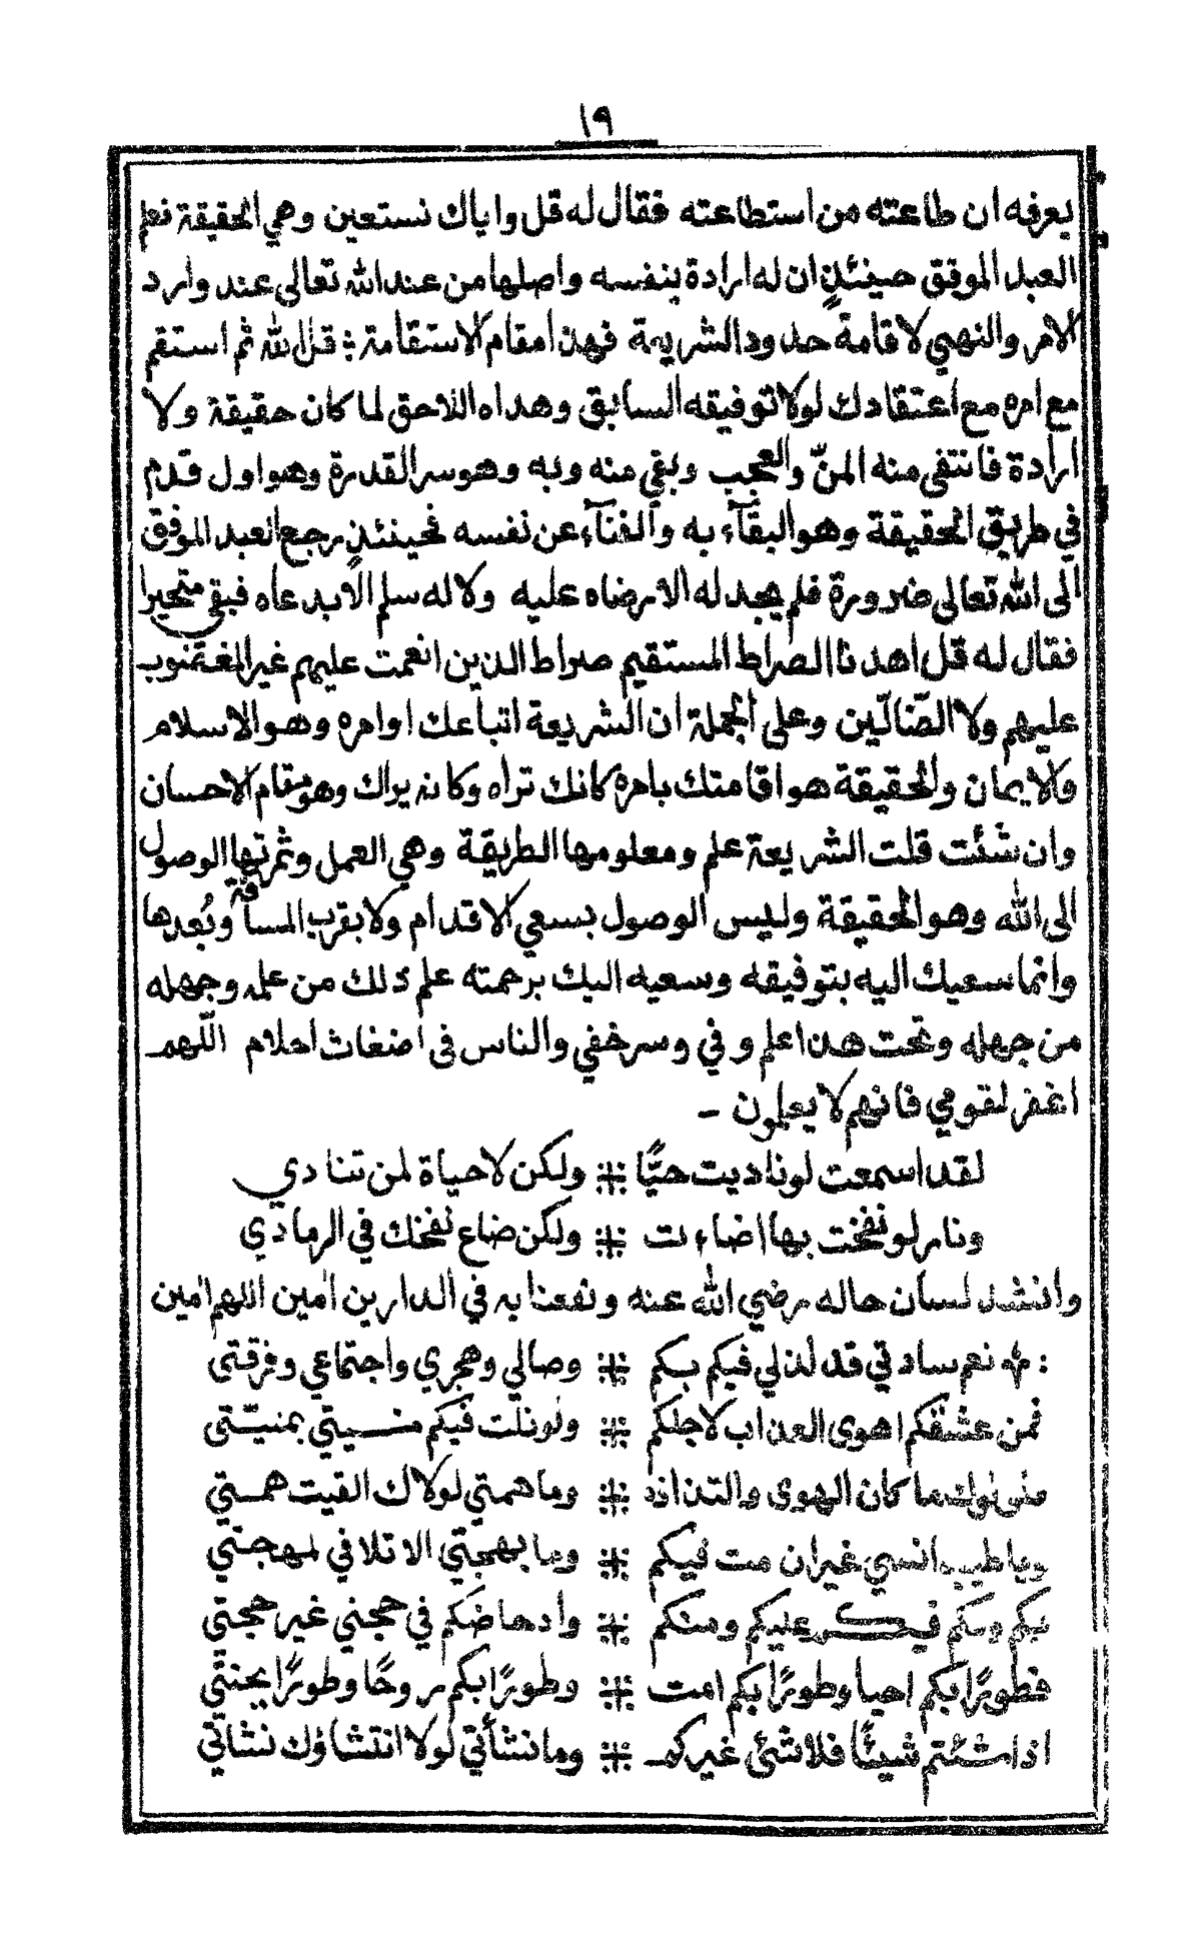 ١٩
يعرفه ان طاعته من استطاعته فقال له قل واياك نستعين وهي الحقيقة نعلم
العبد الموفق حينئذٍ ان له ارادة بنفسه واصلها من عند الله تعالى عند وارد
الامر والنهي لاقامة حدود الشريعة فهذا مقام الاستقامة : قل الله ثم استقم
مع امره مع اعتقادك لولا توفيقه السابق وهداه اللاحق لما كان حقيقة ولا
ارادة فانتفى منه المنّ والعجب وبقي منه وبه وهو سر القدرة وهو اول قدم
في طريق الحقيقة وهو البقآء به والفنآء عن نفسه فحينئذٍ رجع العبد الموفق
الى الله تعالى ضرورة فلم يجد له الا رضاه عليه ولا له سلم الا بدعاه فبقي متحيرا
فقال له قل اهدنا الصراط المستقيم صراط الذين انعمت عليهم غير المغضوب
عليهم ولا الضّآلّين وعلى الجملة ان الشريعة اتباعك اوامره وهو الاسلام
والايمان والحقيقة هو اقامتك بامره كانك تراه وكانه يراك وهو مقام الاحسان
وان شئت قلت الشريعة علم ومعلومها الطريقة وهي العمل وثمرتها الوصول
الى الله وهو الحقيقة وليس الوصول بسعي الاقدام ولا بقرب المسافة وبُعدها
وانما سعيك اليه بتوفيقه وسعيه اليك برحمته علم ذلك من علمه وجهله
من جهله وتحت هذا علم وفي وسر خفي والناس في اضغاث احلام اللّهم
اغفر لقومي فانهم لا يعلمون -
لقد اسمعت لو ناديت حيًّا ⁜ ولكن لا حياة لمن تنادي
ونار لو نفخت بها اضاءت ⁜ ولكن ضاع نفخك في الرمادي
وانشد لسان حاله رضي الله عنه ونفعنا به في الدارين امين اللهم امين
: نعم سادتي قد لذ لي فيكم بكم ⁜ وصالي وهجري واجتماعي وفرقتى
فمن عشقكم اهوى العذاب لاجلكم ⁜ ولو نلت فيكم منيتي بمنيّتى
ما كان الهوى والتذاذه ⁜ وما همتي لولاك القيت همتي
وما طيب انسي غير ان مت فيكم ⁜ وما بهجتي الا تلافي لمهجتي
بكم فيكم عليكم ومنكم ⁜ وادحاضكم في حجتي غير حجتي
فطورًا بكم احيا وطورًا بكم امت ⁜ وطورًا بكم روحًا وطورًا بجنتي
اذا شئتم شيئًا فلا شئ غيركم ⁜ وما نشأتي لولا انتشاؤك نشاتي